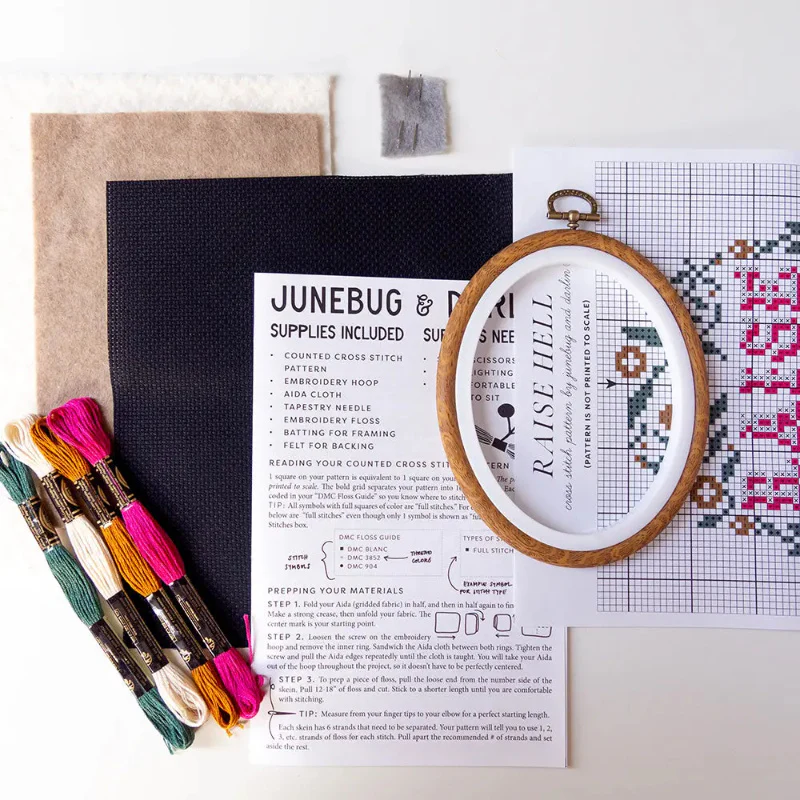 JUNEBUG & D
SUPPLIES INCLUDED
• COUNTED CROSS STITCH
PATTERN
• EMBROIDERY HOOP
• AIDA CLOTH
• TAPESTRY NEEDLE
• EMBROIDERY FLOSS
• BATTING FOR FRAMING
• FELT FOR BACKING
READING YOUR COUNTED CROSS STI
PATTERN
1 square on your pattern is equivalent to 1 square on your
printed to scale. The bold grid separates your pattern into
coded in your "DMC Floss Guide" so you know where to stitch
TIP: All symbols with full squares of color are "full stitches." For
below are "full stitches" even though only 1 symbol is shown as
Stitches box.
DMC FLOSS GUIDE
DMC BLANC
DMC 3852
DMC 904
STITCH
SYMBOLS
THREAD
COLORS
TYPES OF S
FULL STITCH
EXAMPLE SYMBOL
FOR STITCH TYPE
PREPPING YOUR MATERIALS
STEP 1. Fold your Aida (gridded fabric) in half, and then in half again to
Make a strong crease, then unfold your fabric. The
center mark is your starting point.
STEP 2. Loosen the screw on the embroidery
hoop and remove the inner ring. Sandwich the Aida cloth between both rings. Tighten the
screw and pull the Aida edges repeatedly until the cloth is taught. You will take your Aida
out of the hoop throughout the project, so it doesn't have to be perfectly centered.
STEP 3. To prep a piece of floss, pull the loose end from the number side of the
skein. Pull 12-18" of floss and cut. Stick to a shorter length until you are comfortable
with stitching.
TIP: Measure from your finger tips to your elbow for a perfect starting length.
Each skein has 6 strands that need to be separated. Your pattern will tell you to use 1, 2,
3, etc. strands of floss for each stitch. Pull apart the recommended # of strands and set
aside the rest.
RAISE HELL
cross stitch pattern by junebug and darlin
(PATTERN IS NOT PRINTED TO SCALE)
RAISE